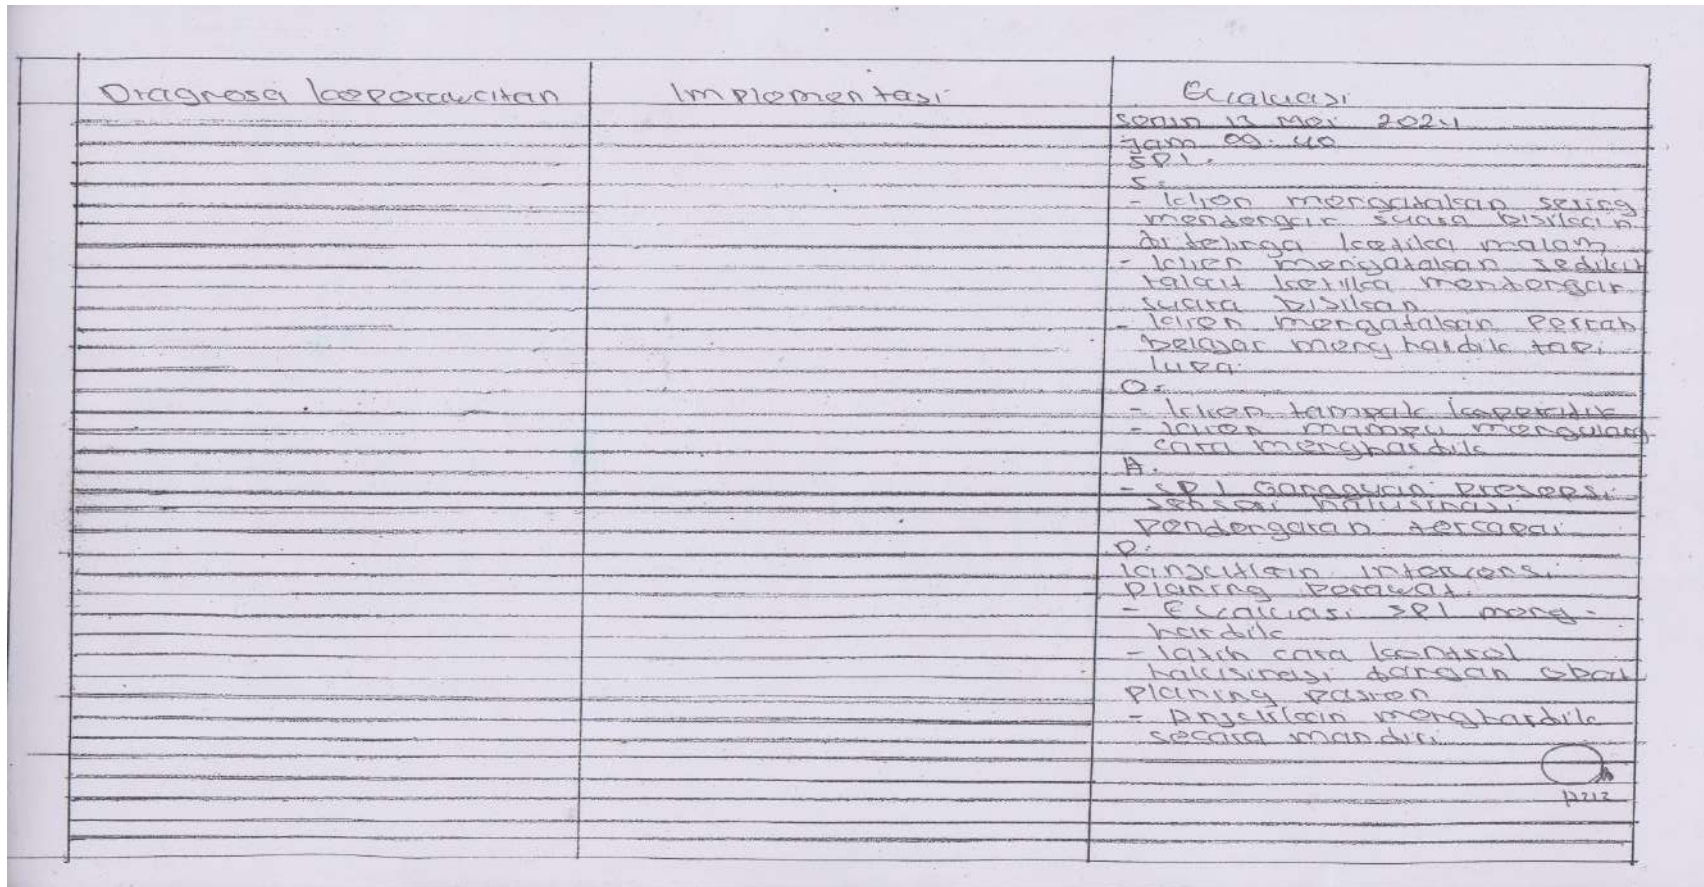 Diagnosa keperawatan
Implementasi
Evaluasi
Senin 13 Mei 2024
Jam 09.40
SP1.
S:
- klien mengatakan sering
mendengar suara bisikan
di telinga ketika malam
- klien mengatakan sedikit
takut ketika mendengar
suara bisikan
- klien mengatakan pernah
belajar menghardik tapi
lupa.
O:
- klien tampak koperatif
- klien mampu mengulang
cara menghardik
A.
- SP1 Gangguan Presepsi
sensori halusinasi
pendengaran tercapai
P.
lanjutkan intervensi
planing perawat.
- Evaluasi SP1 meng-
hardik
- latih cara kontrol
halusinasi dengan obat
planing pasien
- Anjurkan menghardik
secara mandiri